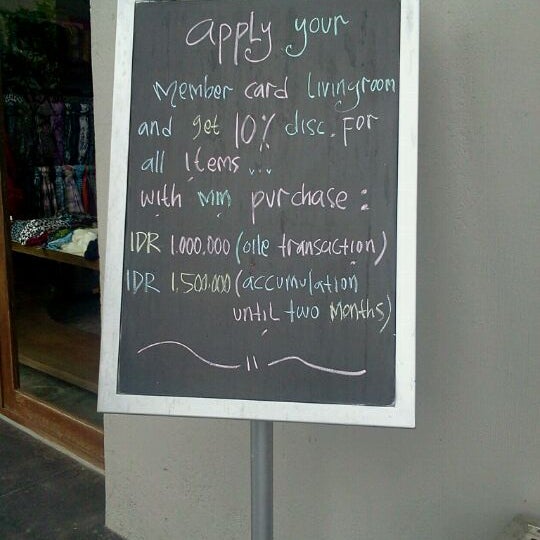 apply your
member card livingroom
and get 10% disc. For
all items...
with min purchase :
IDR 1.000.000 (one transaction)
IDR 1.500.000 (accumulation
until two months)